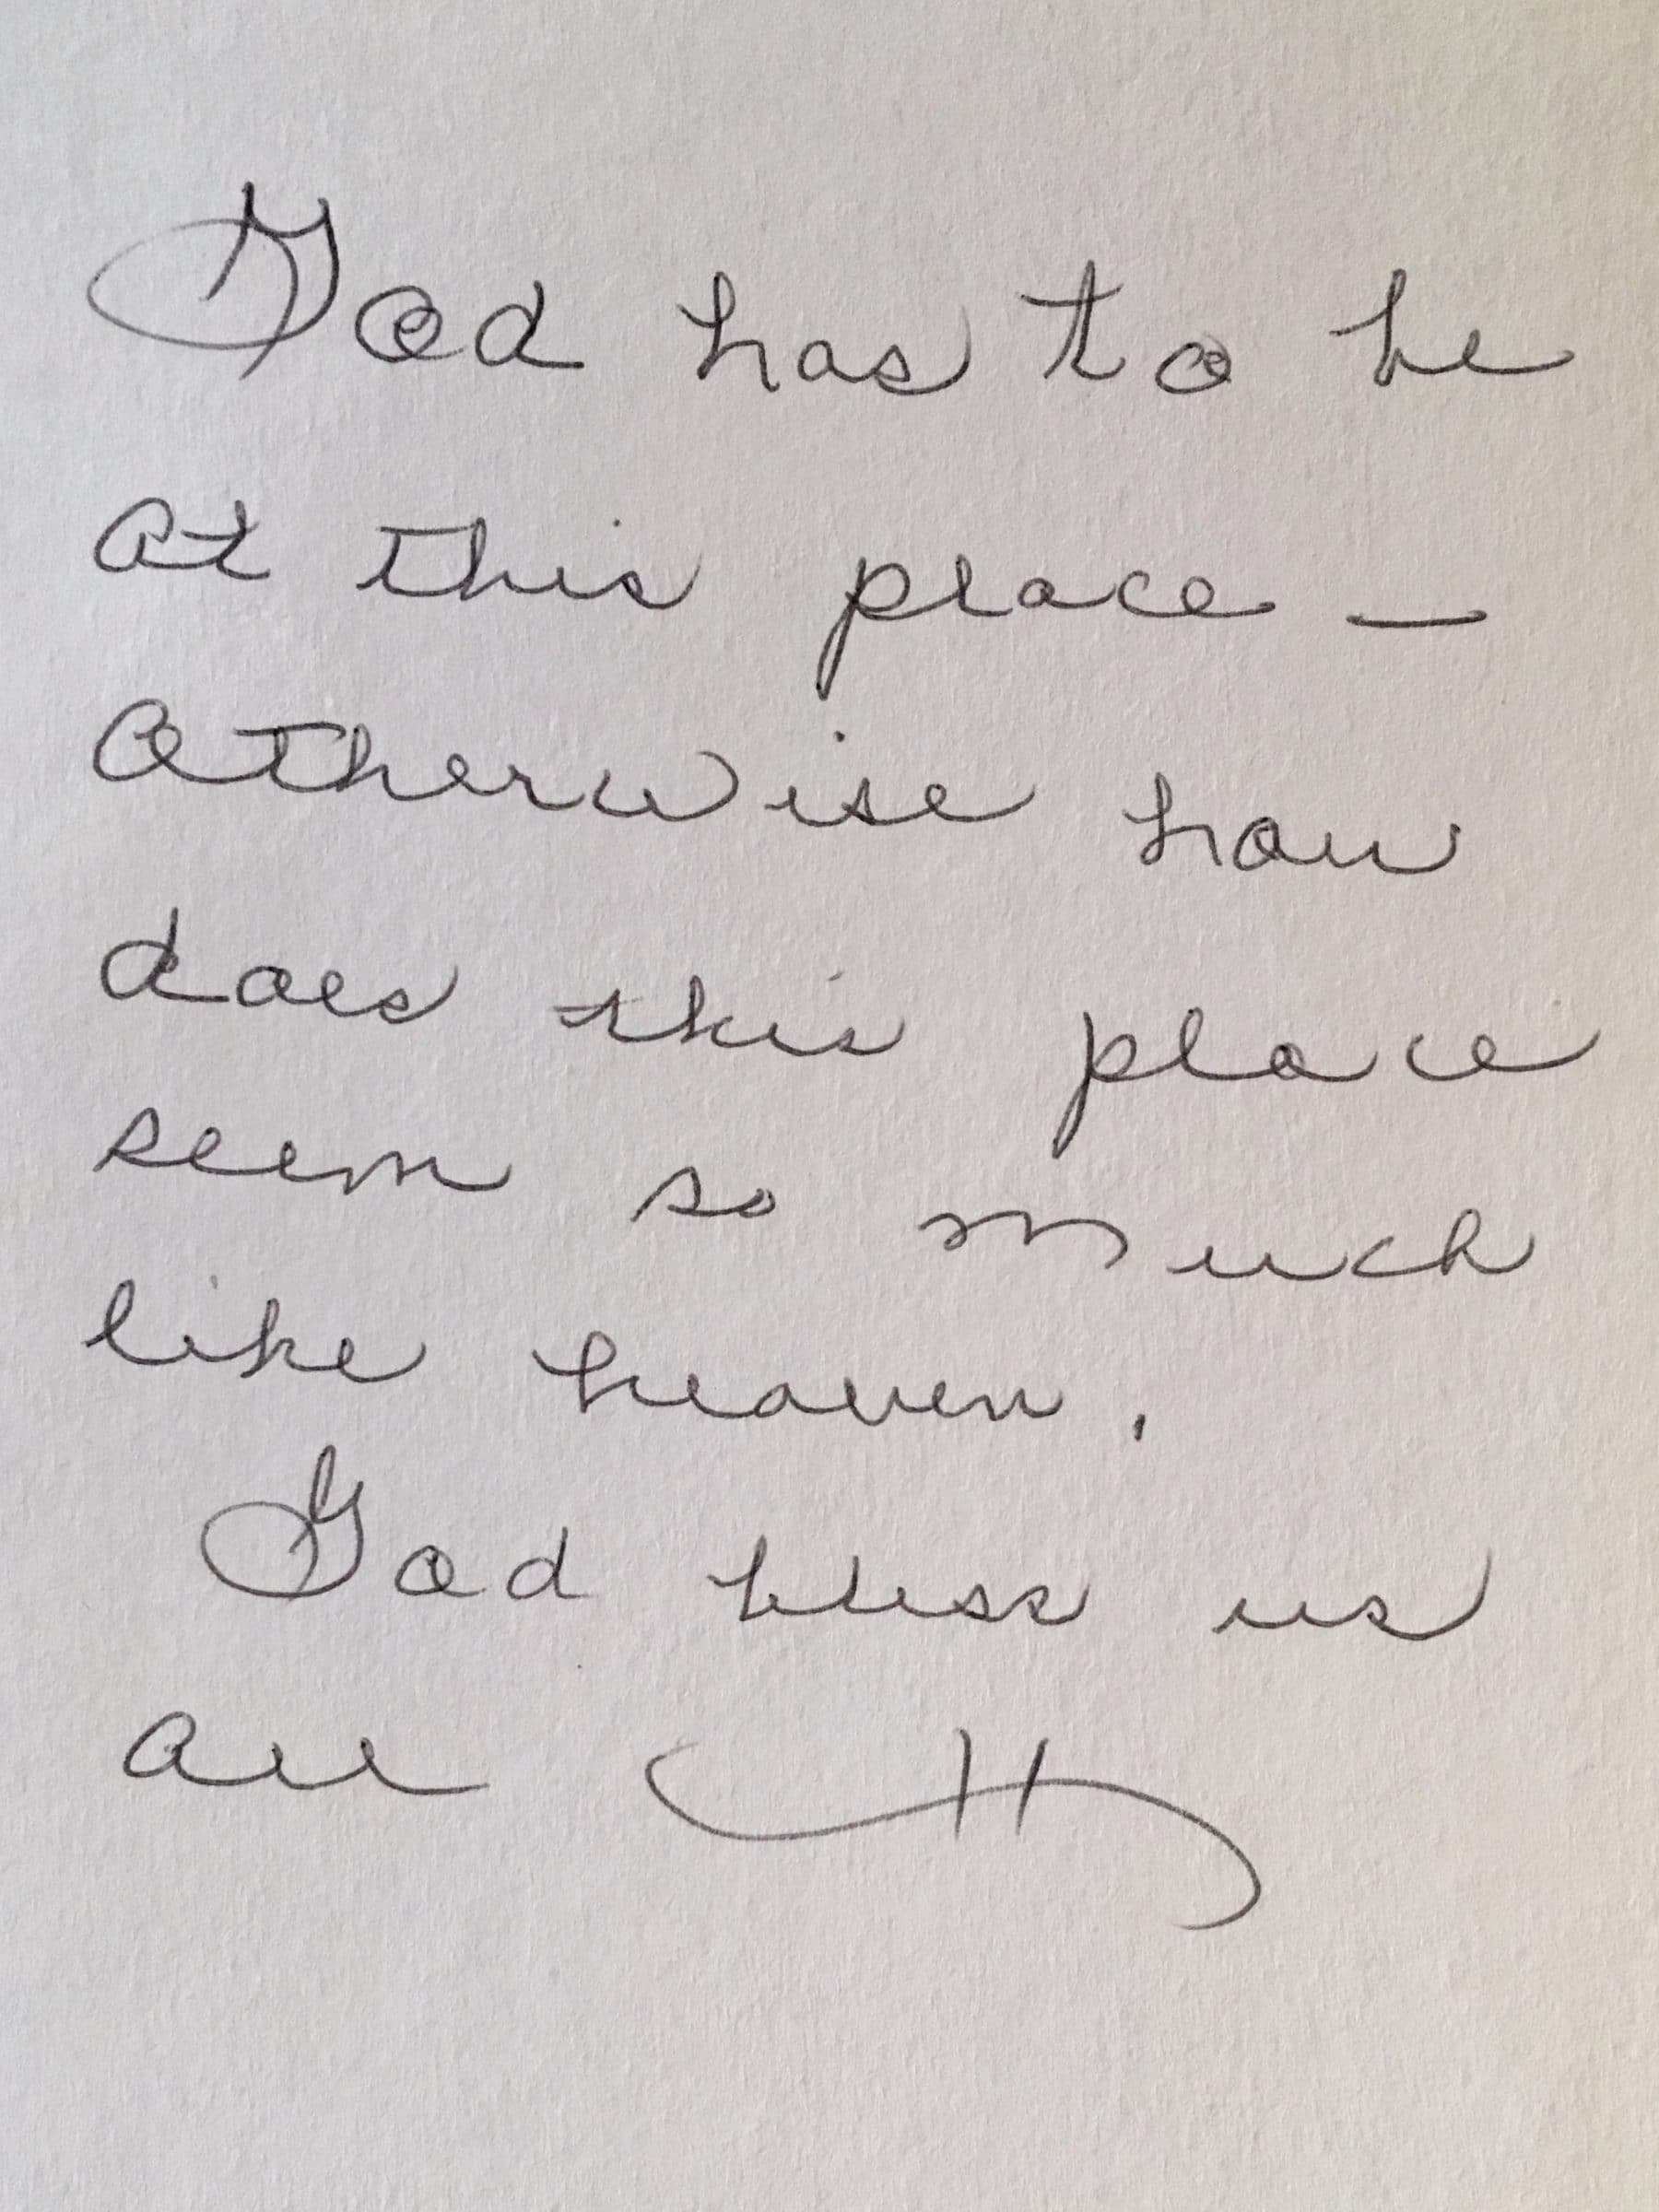 God has to be
at this place —
Otherwise how
does this place
seem so much
like heaven.
God bless us
all